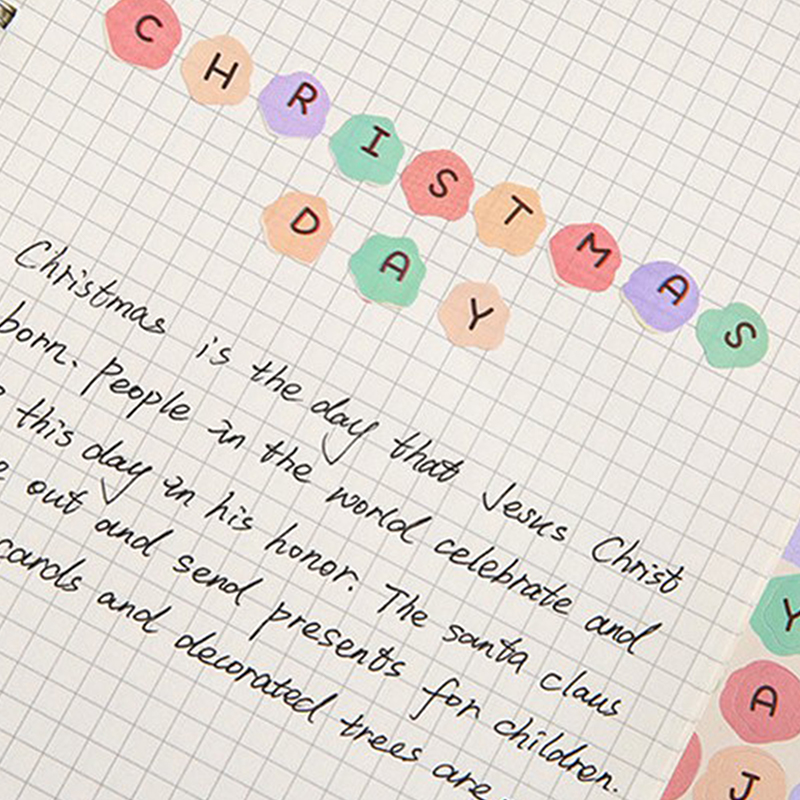 CHRISTMAS
DAY
Christmas is the day that Jesus Christ
born. People in the world celebrate and
this day in his honor. The santa claus
out and send presents for children.
cards and decorated trees are
Y
A
J